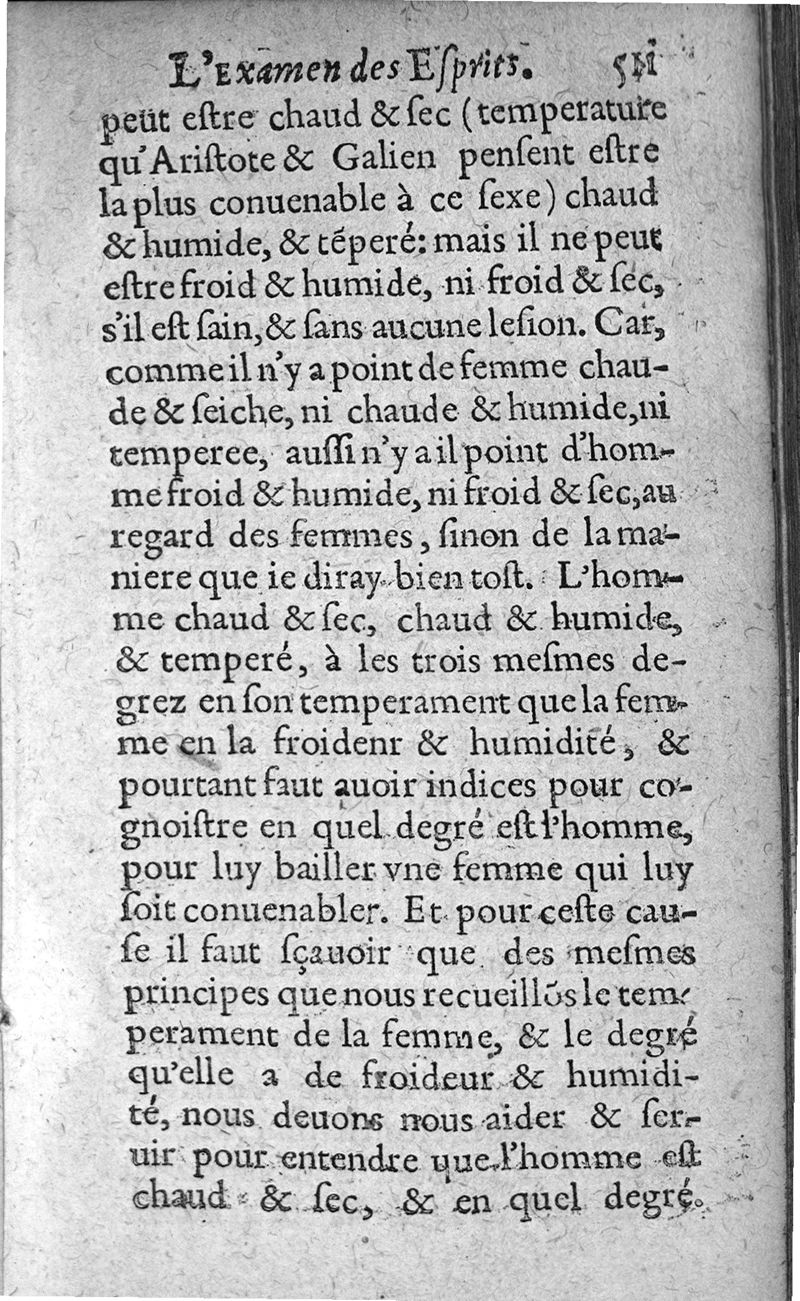 L'Examen des Eſprits. 511
peut eſtre chaud & ſec (temperature
qu'Ariſtote & Galien penſent eſtre
la plus conuenable à ce ſexe) chaud
& humide, & tẽperé: mais il ne peut
eſtre froid & humide, ni froid & ſec,
s'il eſt ſain, & ſans aucune leſion. Car,
comme il n'y a point de femme chau-
de & ſeiche, ni chaude & humide, ni
temperee, auſſi n'y a il point d'hom-
me froid & humide, ni froid & ſec, au
regard des femmes, ſinon de la ma-
niere que ie diray bien toſt. L'hom-
me chaud & ſec, chaud & humide,
& temperé, à les trois meſmes de-
grez en ſon temperament que la fem-
me en la froidenr & humidité, &
pourtant faut auoir indices pour co-
gnoiſtre en quel degré eſt l'homme,
pour luy bailler vne femme qui luy
ſoit conuenabler. Et pour ceſte cau-
ſe il faut ſçauoir que des meſmes
principes que nous recueillõs le tem-
perament de la femme, & le degré
qu'elle a de froideur & humidi-
té, nous deuons nous aider & ſer-
uir pour entendre que l'homme eſt
chaud & ſec, & en quel degré.